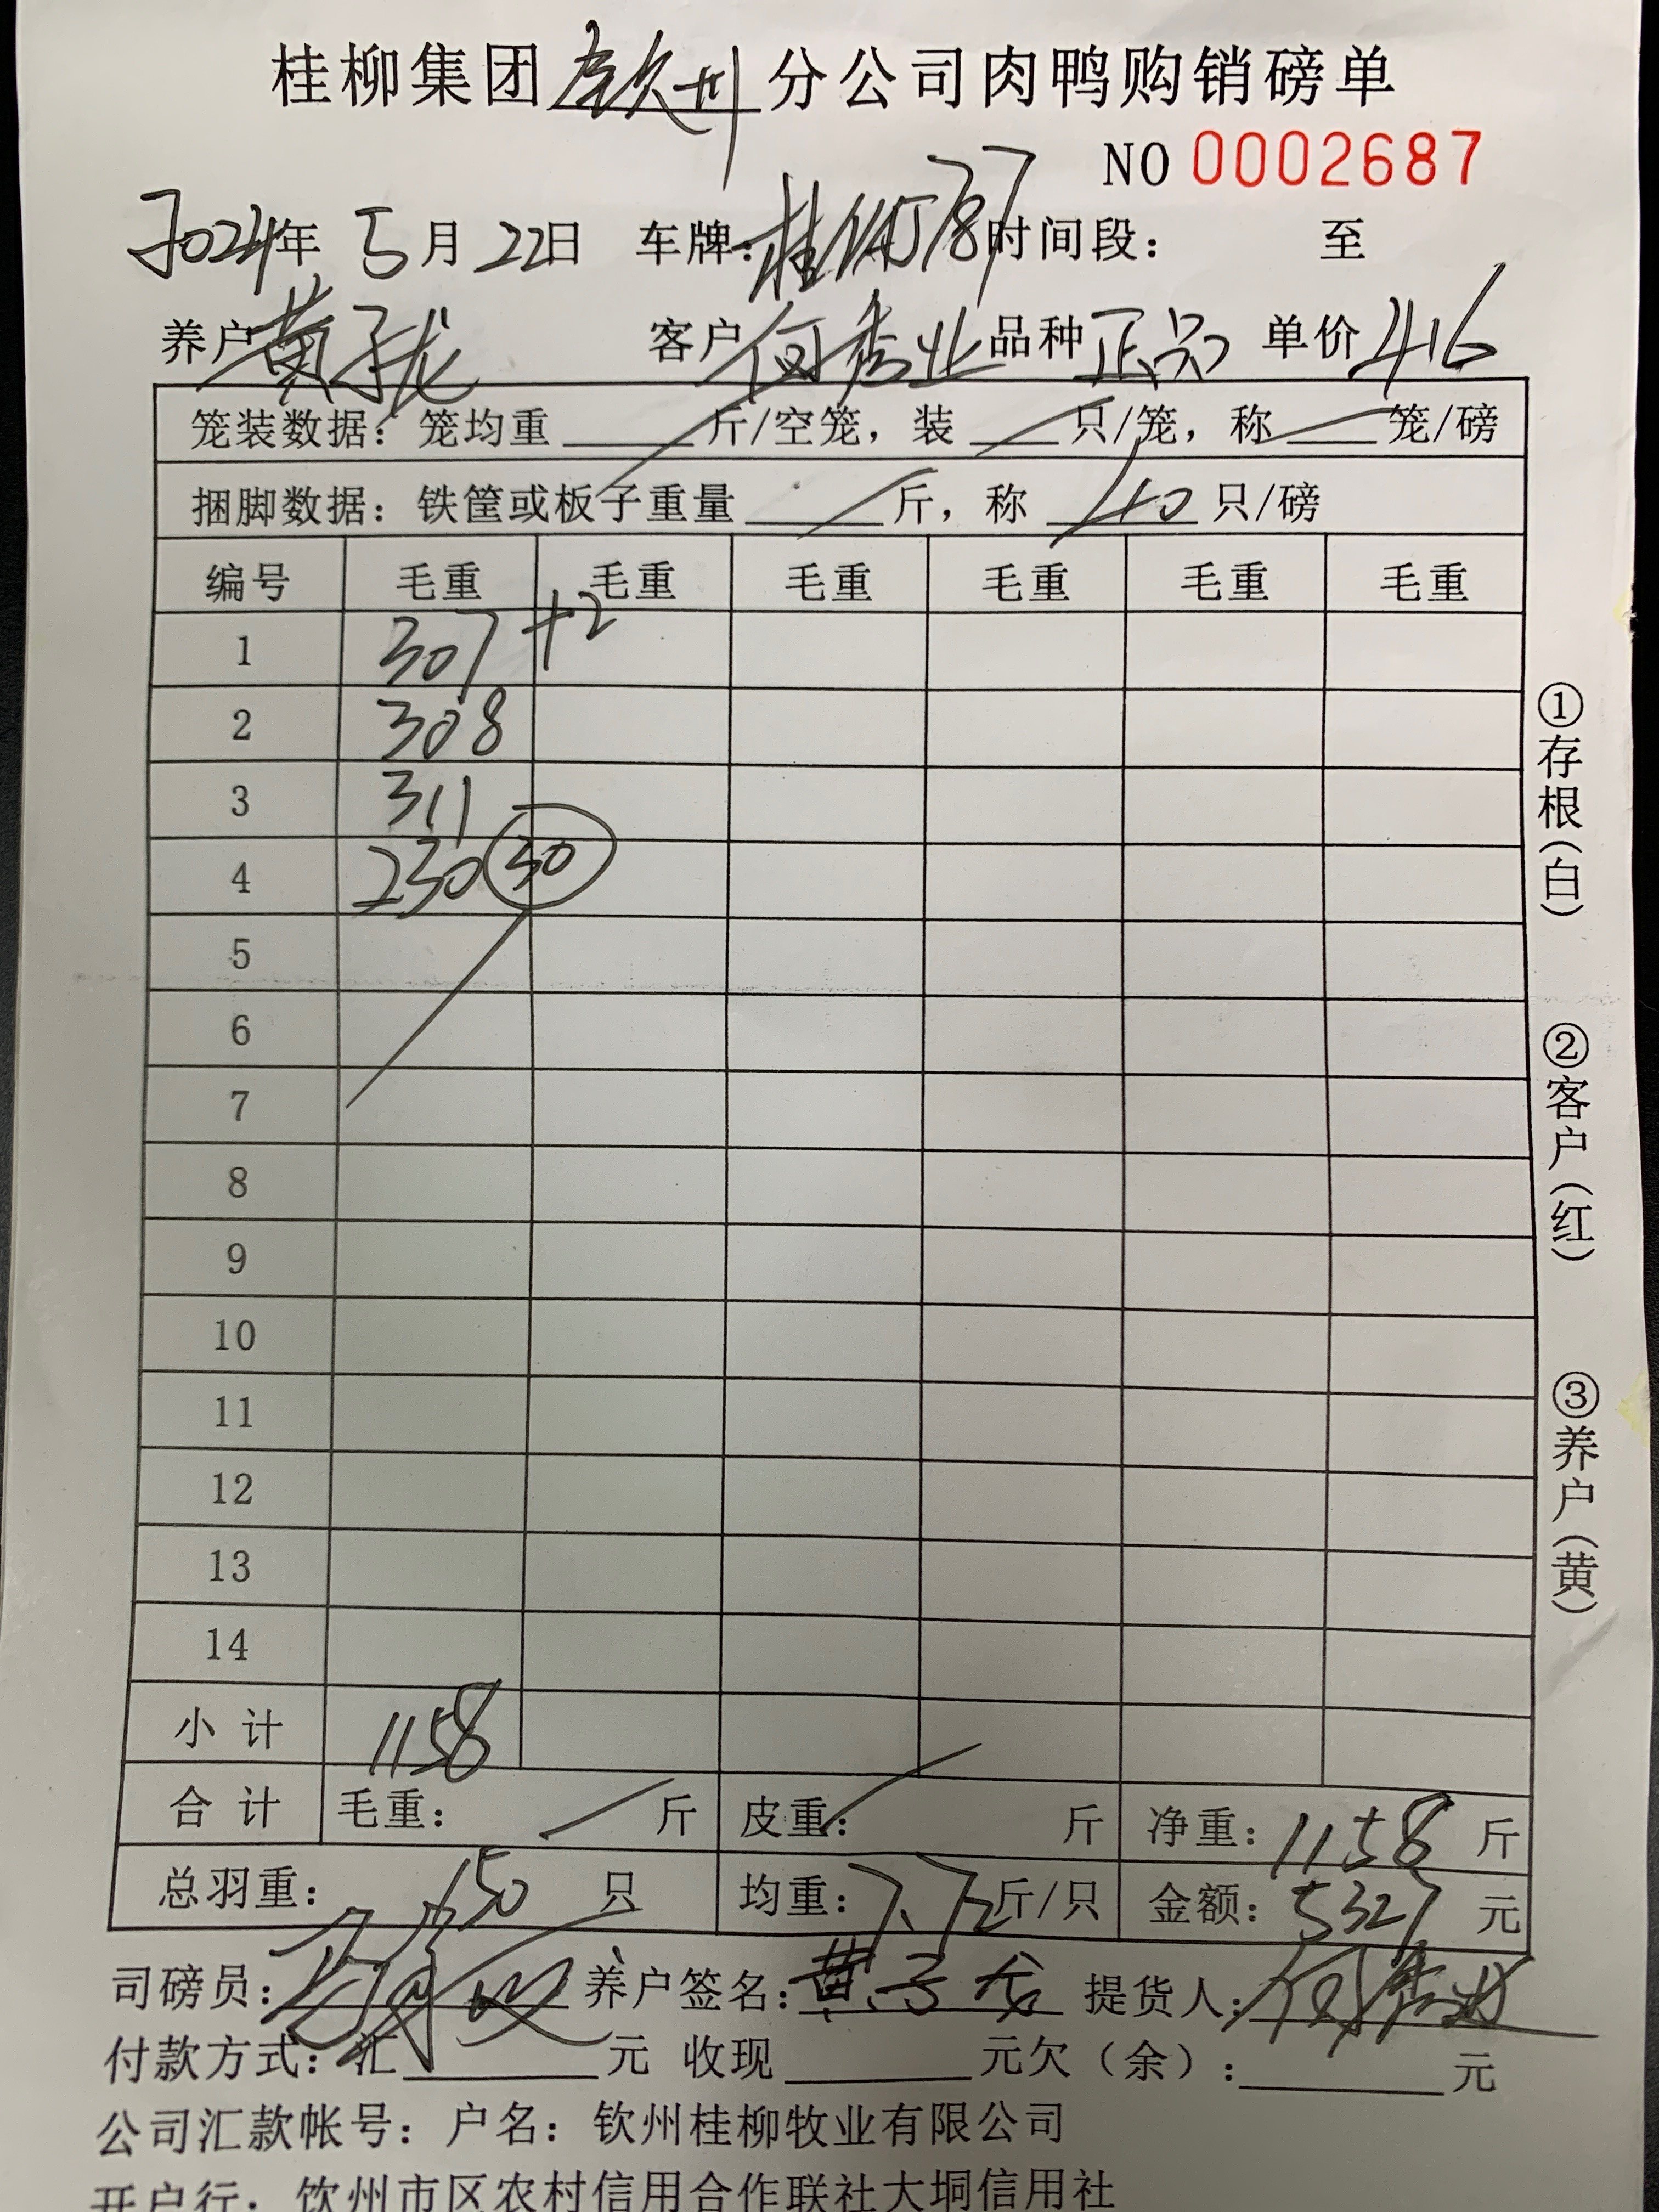 桂柳集团钦州分公司肉鸭购销磅单
NO 0002687
2024年 5月22日 车牌: 桂 787 时间段: 至
养户 黄子龙 客户 何秀业 品种 正品 单价 4.6
笼装数据: 笼均重____斤/空笼, 装____只/笼, 称____笼/磅
捆脚数据: 铁筐或板子重量____斤, 称 40 只/磅
编号 毛重 毛重 毛重 毛重 毛重 毛重
1 307 +2
2 308
3 311
4 230 30
5
6
7
8
9
10
11
12
13
14
小 计 1158
合 计 毛重: 斤 皮重: 斤 净重: 1158 斤
总羽重: 150 只 均重: 7.72 斤/只 金额: 5327 元
司磅员: 养户签名: 黄子龙 提货人: 何秀业
付款方式: 汇____元 收现____元欠(余):____元
公司汇款帐号: 户名: 钦州桂柳牧业有限公司
开户行: 钦州市区农村信用合作联社大垌信用社
①存根(白)
②客户(红)
③养户(黄)